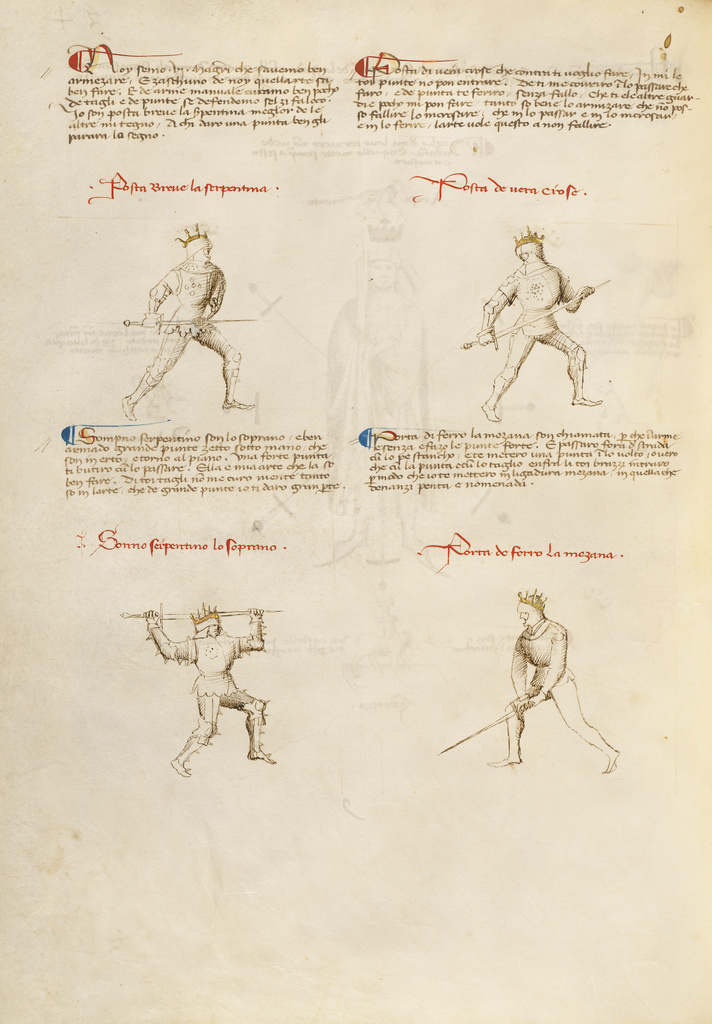 Noy semo .vi. magistri che savemo ben
armezare. E zaschuno de noy quella arte sa
ben fare. E de arme manuale curamo ben pocho
de tagli e de punte se defendemo sel zi fa loco.
Io son posta breve la serpentina meglor de le
altre mi tegno. A chi daro una punta ben gli
parara lo segno.
Posta di vera crose che contra ti voglio fare. In mi le
toy punte no pon entrare. De ti me covriro i lo passare che
faro, e de punta te feriro, senza fallo. Che ti e le altre guar-
die pocho mi pon fare. tanto so bene lo armizare che no pos-
so fallire lo incrosare, che in lo passar e in lo incrosar
e in lo ferire, larte vole questo a non fallire.
Posta Breve la serpentina.
Posta de vera Crose.
Sompno serpentino son lo soprano, e ben
armado grande punte zetto sotto mano, che
son in erto, e torno al piano. Una forte punta
ti butiro cu lo passare. Ella e mia arte che la so
ben fare. Di toi tagli no me curo niente tanto
so in larte, che de grande punte io ti daro gran parte.
Porta di ferro la mezana son chiamata, per che larme
e senza e fazo le punte forte. E passaro fora di strada
cu lo pe stancho, e te metero una punta i lo volto, overo
che cu la punta e cu lo taglio entrero in ti toi brazzi intraro
per modo che io te metero in ligadura mezana, in quella che
denanzi penta e nomenada.
Sonno serpentino lo soprano.
Porta de ferro la mezana.